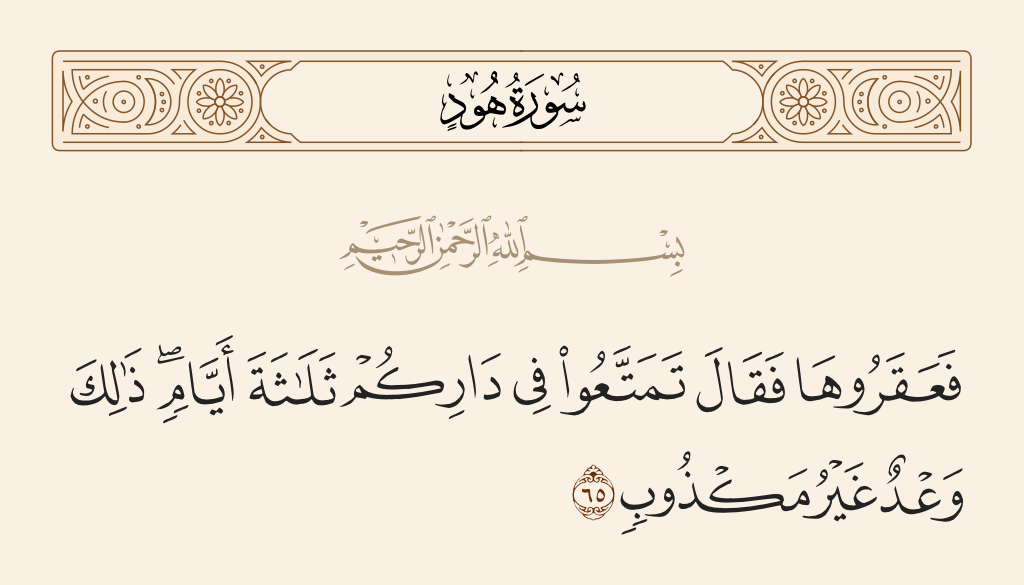 سُورَةُ هُودٍ
بِسْمِ ٱللَّهِ ٱلرَّحْمَٰنِ ٱلرَّحِيمِ
فَعَقَرُوهَا فَقَالَ تَمَتَّعُوا۟ فِى دَارِكُمْ ثَلَٰثَةَ أَيَّامٍۢ ۖ ذَٰلِكَ
وَعْدٌ غَيْرُ مَكْذُوبٍۢ ٦٥